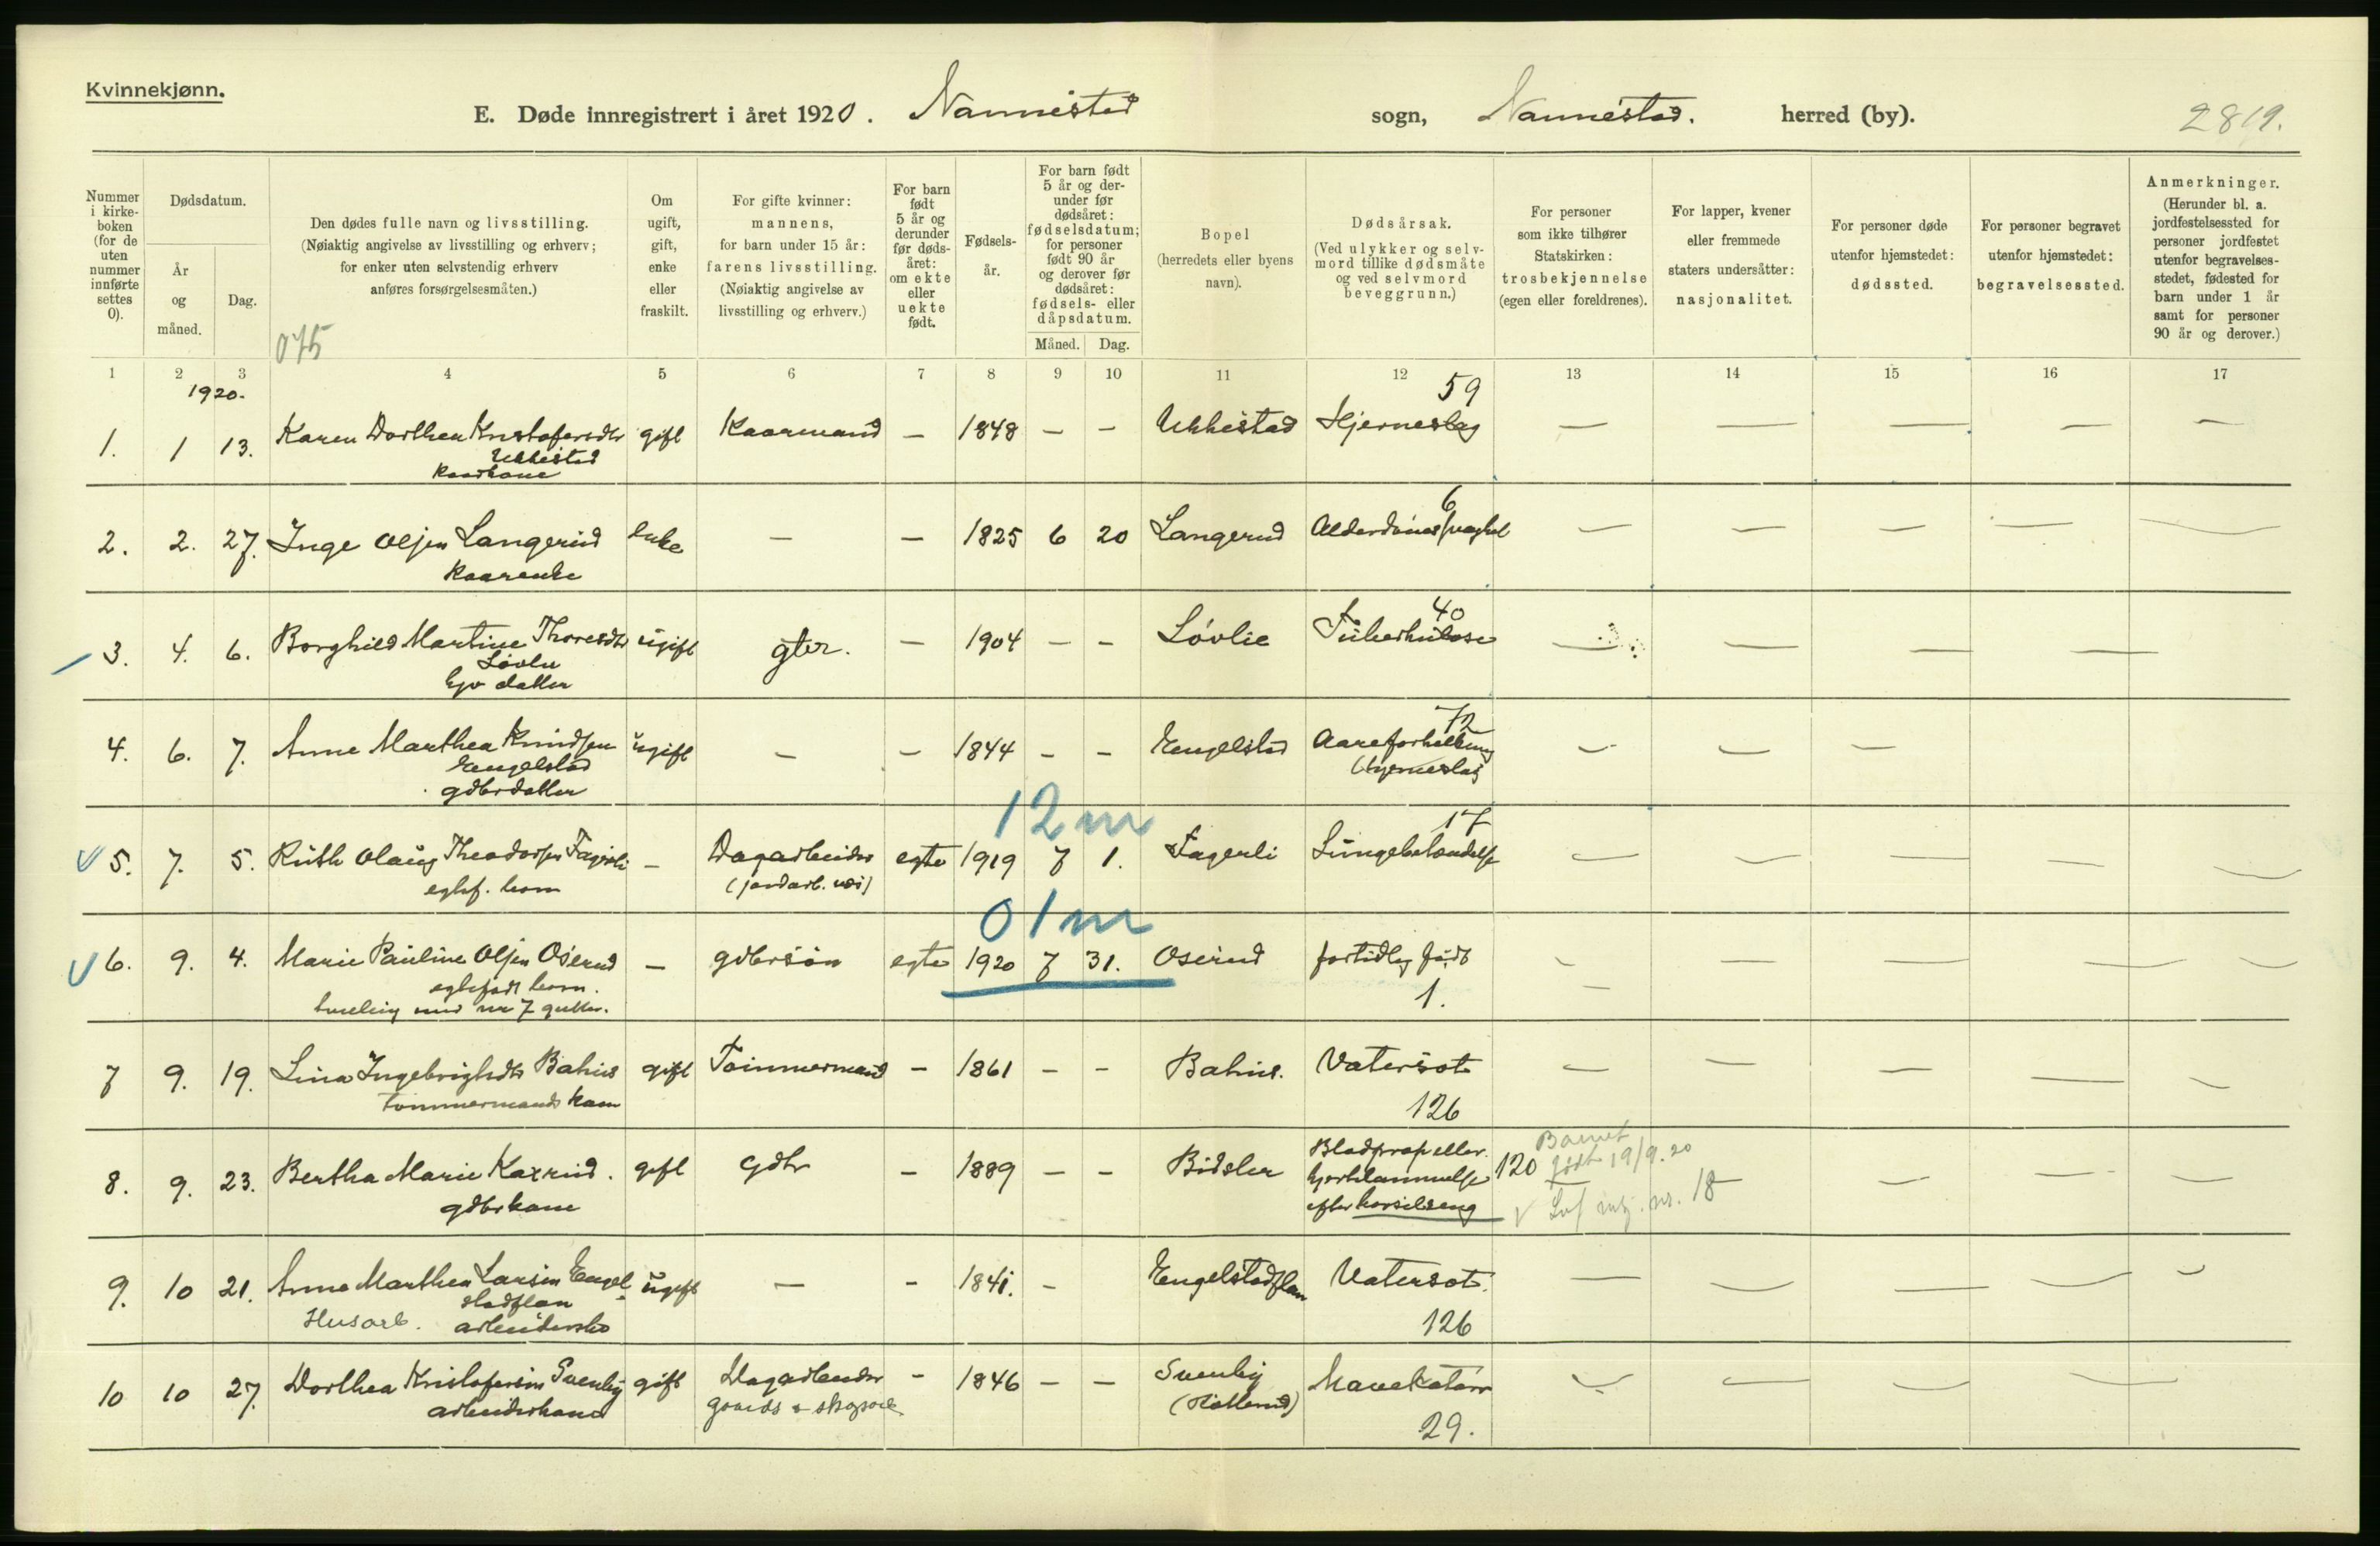 Kvinnekjønn.
E. Døde innregistrert i året 1920. Nannestad sogn, Nannestad. herred (by). 2819.
Nummer i kirke-boken (for de uten nummer innførte settes 0).
Dødsdatum.
År og måned.
Dag.
Den dødes fulle navn og livsstilling.
(Nøiaktig angivelse av livsstilling og erhverv;
for enker uten selvstendig erhverv
anføres forsørgelsesmåten.)
075
Om ugift, gift, enke eller fraskilt.
For gifte kvinner:
mannens,
for barn under 15 år:
farens livsstilling.
(Nøiaktig angivelse av
livsstilling og erhverv.)
For barn født 5 år og derunder før døds-året: om ekte eller uekte født.
Fødsels-år.
For barn født 5 år og der-under før dødsåret: fødselsdatum; for personer født 90 år og derover før dødsåret: fødsels- eller dåpsdatum.
Måned. Dag.
Bopel
(herredets eller byens navn).
Dødsårsak.
(Ved ulykker og selv-mord tillike dødsmåte og ved selvmord beveggrunn.)
For personer som ikke tilhører Statskirken: trosbekjennelse (egen eller foreldrenes).
For lapper, kvener eller fremmede staters undersåtter: nasjonalitet.
For personer døde utenfor hjemstedet: dødssted.
For personer begravet utenfor hjemstedet: begravelsessted.
Anmerkninger.
(Herunder bl. a. jordfestelsessted for personer jordfestet utenfor begravelses-stedet, fødested for barn under 1 år samt for personer 90 år og derover.)
1 2 3 4 5 6 7 8 9 10 11 12 13 14 15 16 17
1920.
59
1. 1 13. Karen Dorthea Kristofersdtr gift Kaarmand — 1848 — — Ukkestad Hjerneslag — — — — —
Ukkestad
Kaarkone
6
2. 2. 27. Inge Olsen Langerud Enke — — 1825 6 20 Langerud — — — — —
Kaarenke
40
3. 4. 6. Borghild Martine Thoresdtr ugift gbr. — 1904 — — Løvlie Tuberkulose — — — —
Løvlie
datter
72
4. 6. 7. Anne Marthea Knudsen ugift — — 1844 — — Engelstad Aareforkalkning — — —
Engelstad (hjerneslag
gdbrdatter
12 m
17
5. 7. 5. Ruth Olaug Theodorsen Fagerli — Dagarbeider egte 1919 7 1. Fagerli Lungebetændelse — — — — —
egtef. barn (jordarb. )
01 m
6. 9. 4. Marie Pauline Olsen Oserud — gdbrsøn egte 1920 7 31. Oserud fortidlig født — — — — —
egtefødt barn. 1. —
tvilling med nr 7 gutter.
7 9. 19. Lina Ingebrigtsdtr Bahus gift Tømmermand — 1861 — — Bahus. Vatersot — — — — —
tømmermands kone 126
8. 9. 23. Bertha Marie Kaxrud. gift Gdbr — 1889 — — Bidsler Blodprop eller 120 Barnet født 19/9.20 — — — —
gdbrkone hjertelammelse
efter barselseng nr. 18
9. 10 21. Anne Marthea Larsen Engel- ugift — — 1841. — Engelstadflan Vatersot. — — — — —
stadflan
Husarb. arbeiderske 126
10 10 27. Dorthea Kristofersen Svenby gift Dagarbeider — 1846 — — Svenby Mavekatarr — — — —
arbeiderkone gaards & skogsarb. 29.